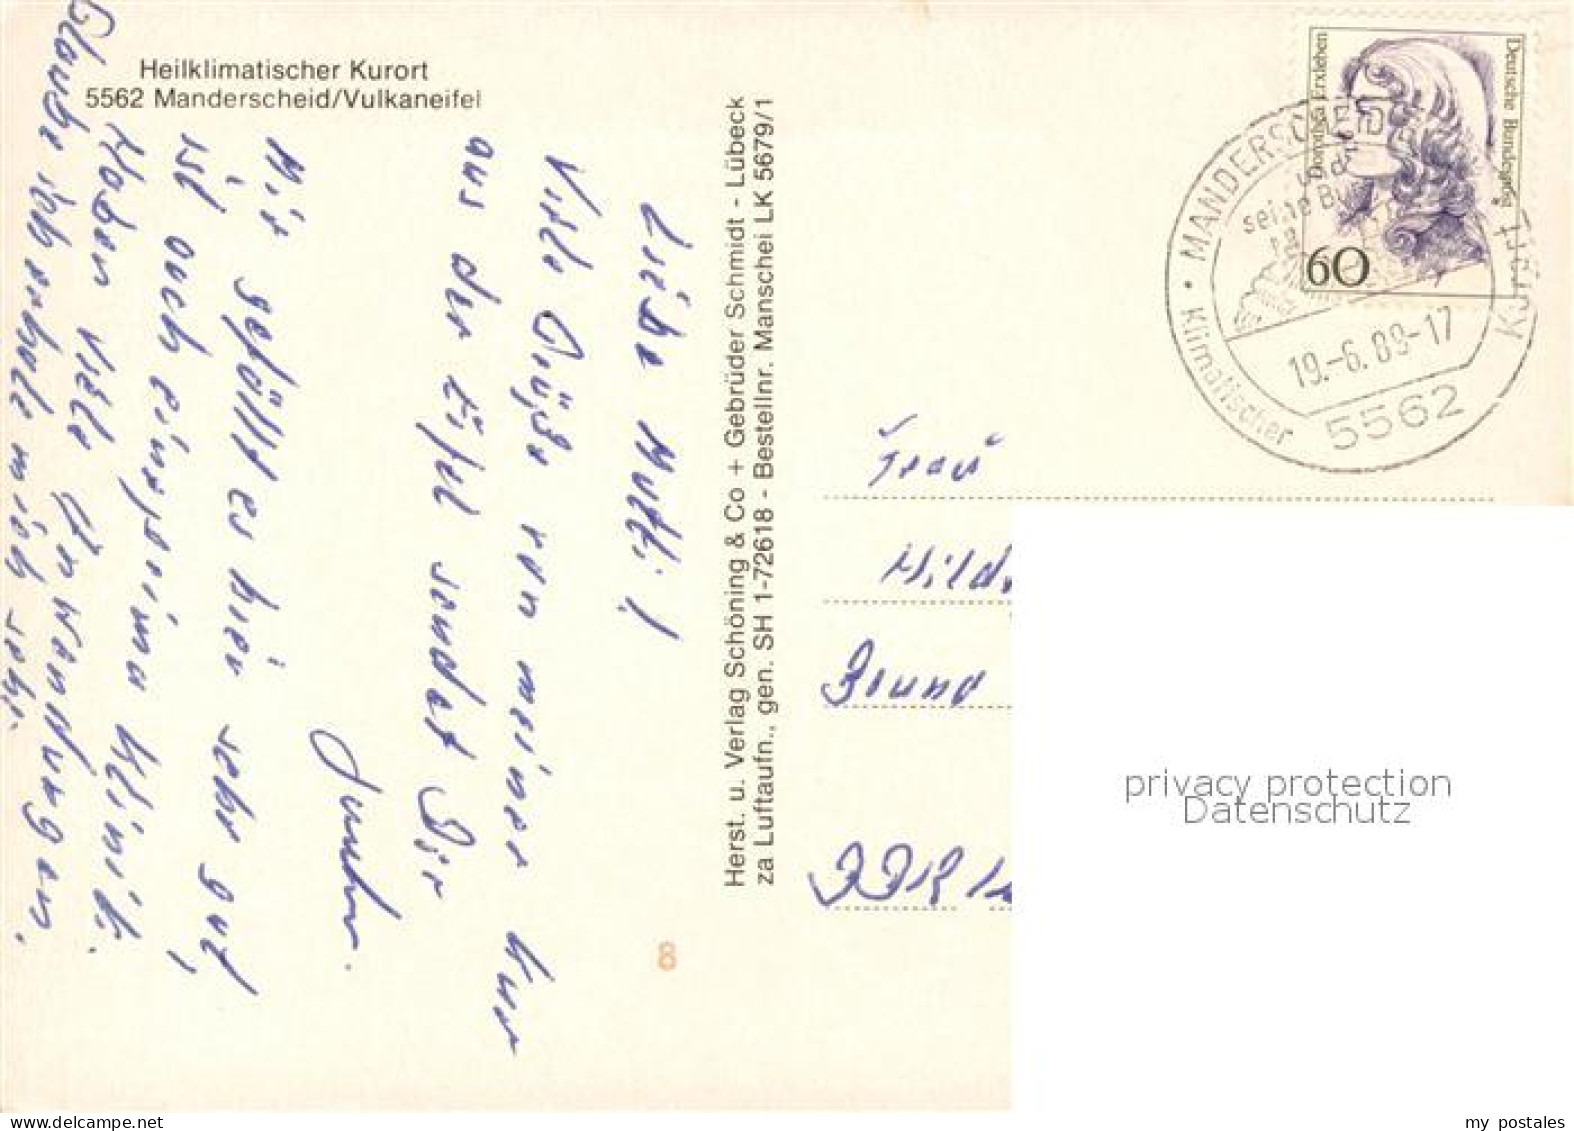 Heilklimatischer Kurort
5562 Manderscheid/Vulkaneifel
Liebe Mutti!
Viele Grüße von meiner Kur
aus der Eifel sendet Dir
Mir gefällt es hier sehr gut,
ist auch eine prima Klinik.
Haben viele Anwendungen.
Glaube ich erhole mich sehr.
Herst. u. Verlag Schöning & Co + Gebrüder Schmidt - Lübeck
za Luftaufn., gen. SH 1-72618 - Bestellnr. Manschei LK 5679/1
8
Deutsche Bundespost
Dorothea Erxleben
60
MANDERSCHEID
und
seine Bu
Klimatischer
Kurort
19.-6.89-17
5562
Frau
Hild
DDR
privacy protection
Datenschutz
my postales